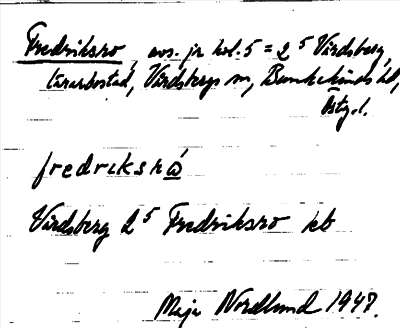 Fredriksro, avs. jr kol. 5 = 2⁵ Vårdsberg,
lärarbostad, Vårdsbergs sn, Bankekinds hd,
Östg.l.
fredriksrω
Vårdsberg 2⁵ Fredriksro kb
Maja Nordlund 1947.